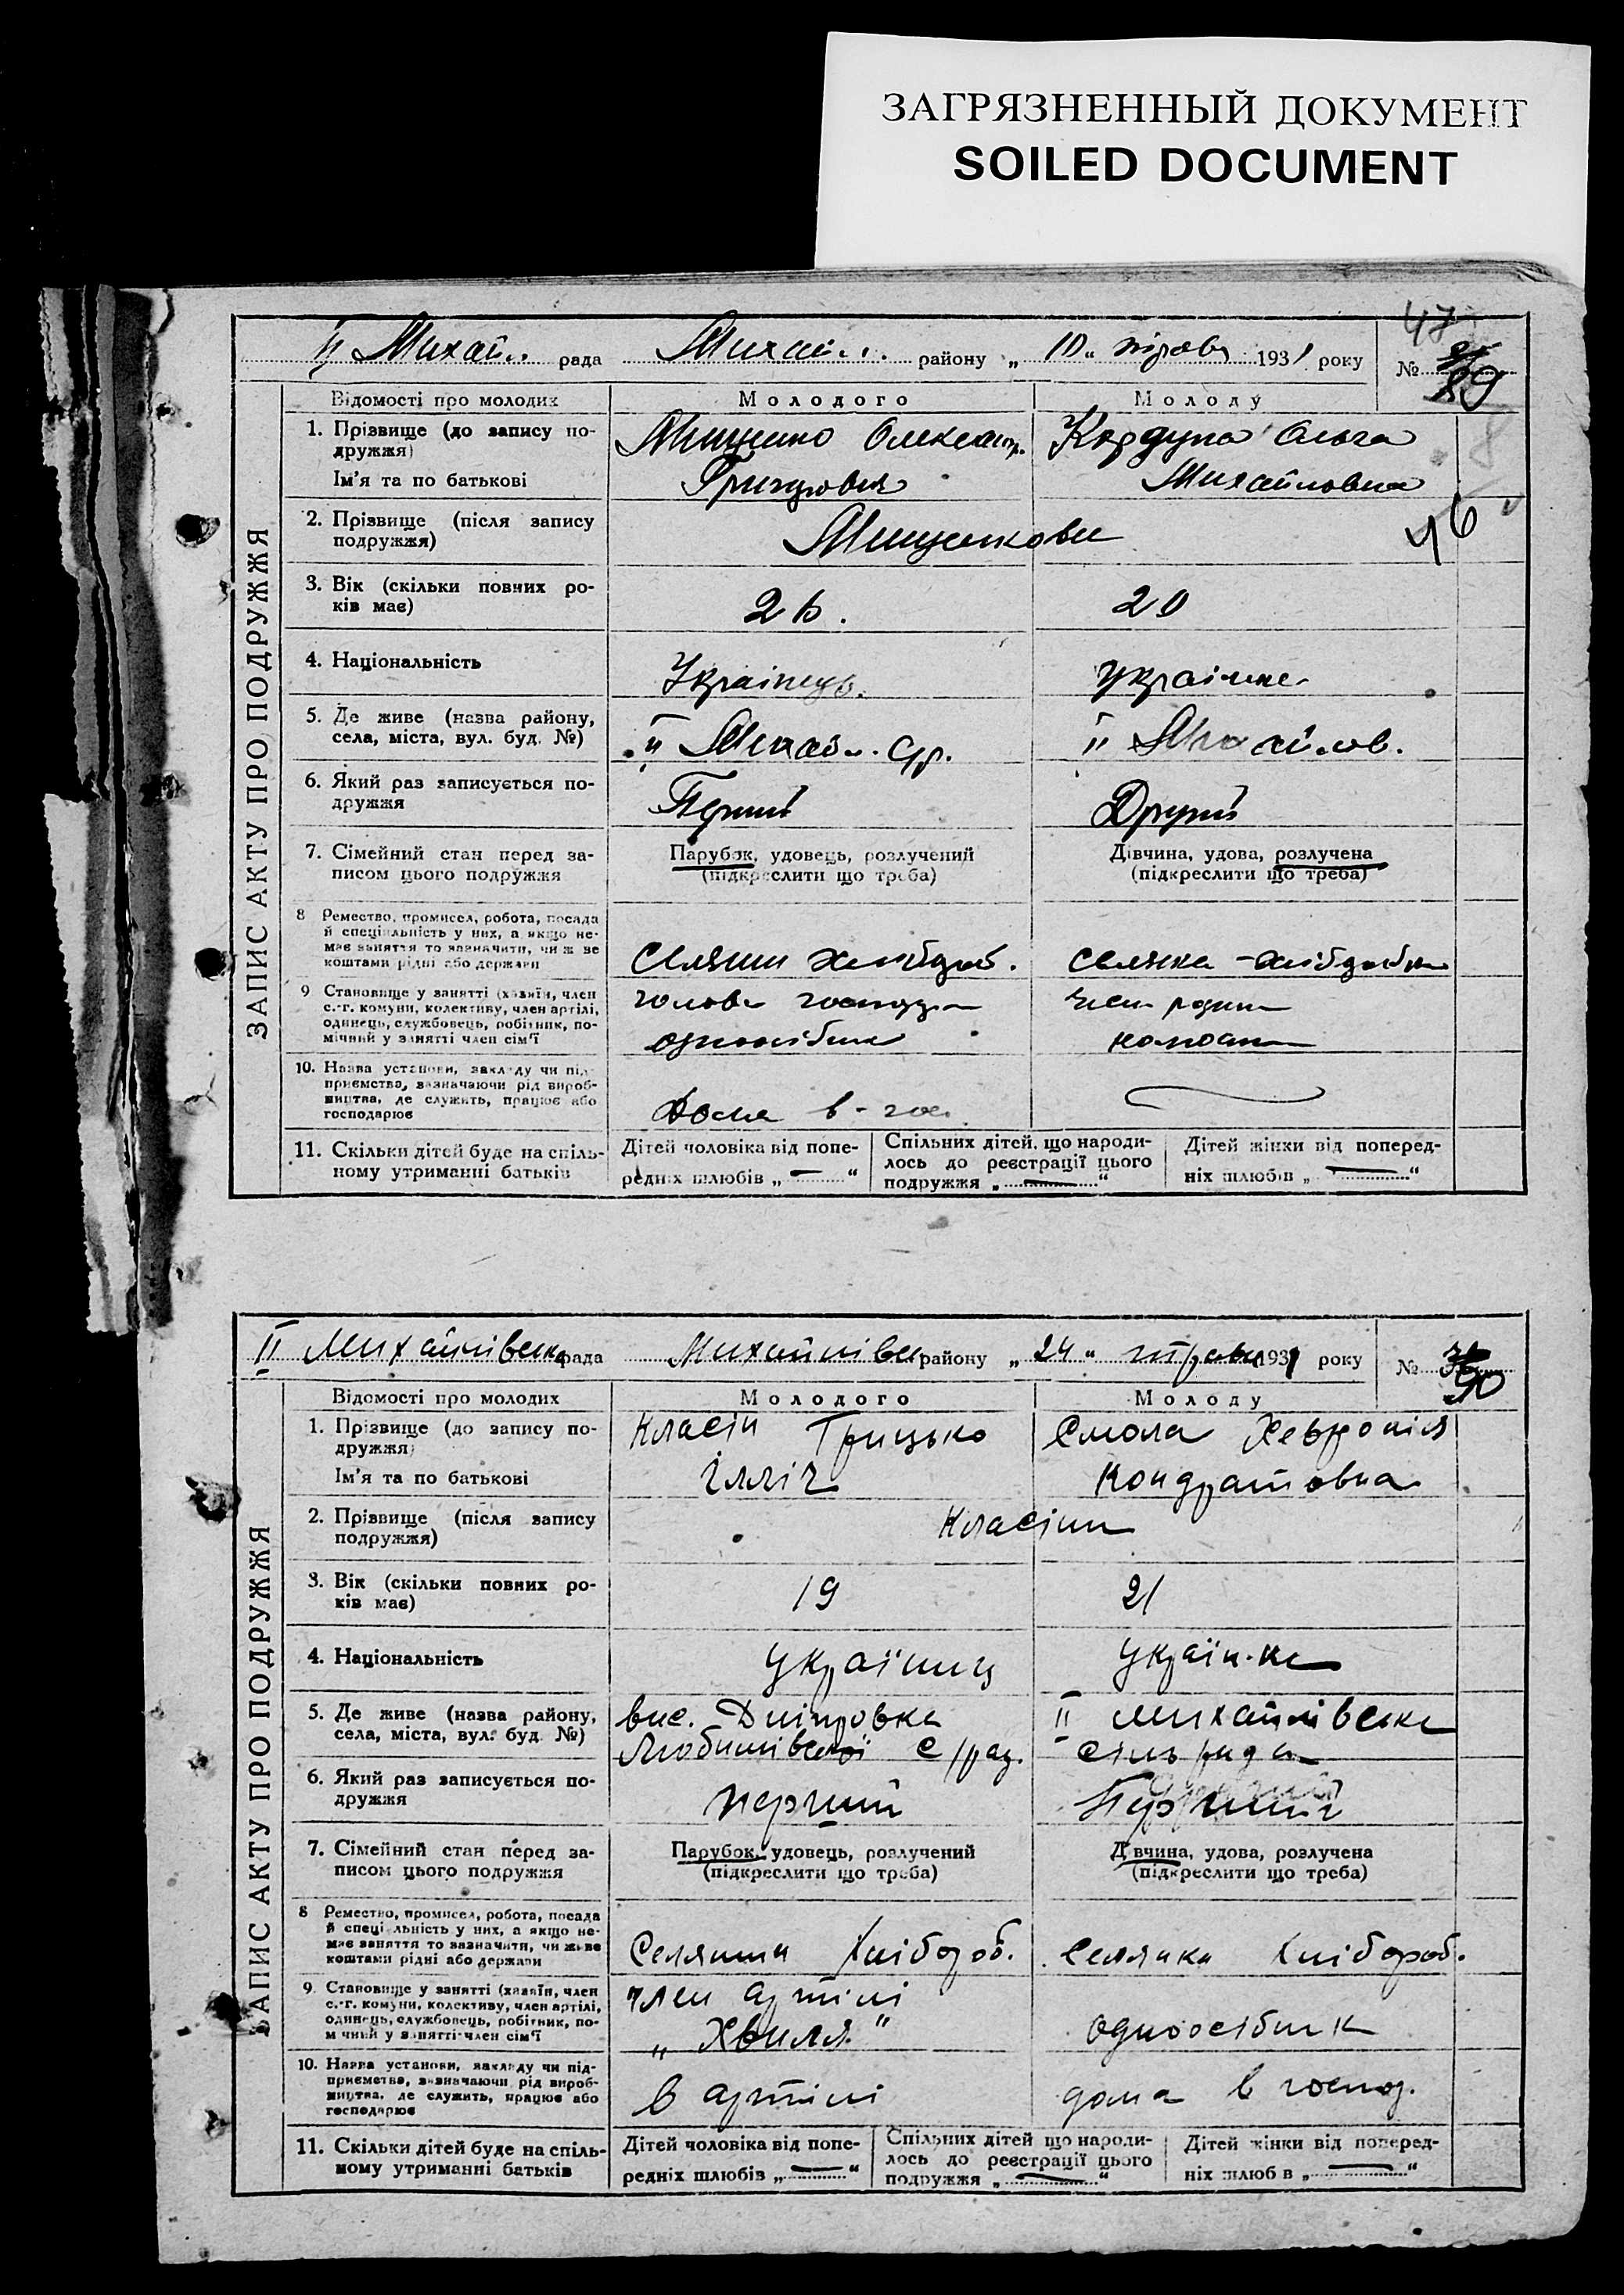 ЗАГРЯЗНЕННЫЙ ДОКУМЕНТ
SOILED DOCUMENT
47
ІІ Михайл. рада Михайл. району „10" травня 1931 року №
89
ЗАПИС АКТУ ПРО ПОДРУЖЖЯ
Відомості про молодих Молодого Молоду
1. Прізвище (до запису по-
дружжя)
Ім'я та по батькові
Мищенко Олександр.
Григорович
Кордупа Ольга
Михайловна
46
2. Прізвище (після запису
подружжя)
Мищенкови
3. Вік (скільки повних ро-
ків має)
26. 20
4. Національність
Українець. українка
5. Де живе (назва району,
села, міста, вул. буд. №)
ІІ Михайл. с/р. ІІ Михайлов.
6. Який раз записується по-
дружжя
Перший Другий
7. Сімейний стан перед за-
писом цього подружжя
Парубок, удовець, розлучений
(підкреслити що треба)
Дівчина, удова, розлучена
(підкреслити що треба)
8 Ремество, промисел, робота, посада
й спеціяльність у них, а якщо не-
має заняття то зазначити, чиж ве
коштами рідні або держави
Селянин хлібороб. селянка - хліборобка
9 Становище у занятті (хазяїн, член
с.-г. комуни, колективу, член артілі,
одинець, службовець, робітник, по-
мічний у занятті член сім'ї
голова господар
одноосібник
член родини
10. Назва установи, закладу чи під-
приємства, зазначаючи рід вироб-
ництва, де служить, працює або
господарює
Дома в-гос.
11. Скільки дітей буде на спіль-
ному утриманні батьків
Дітей чоловіка від попе-
редніх шлюбів „ — "
Спільних дітей, що народи-
лось до реєстрації цього
подружжя „ — "
Дітей жінки від поперед-
ніх шлюбів „ — "
ІІ Михайлівська рада Михайлівськ району „24" травня 1931 року №
90
ЗАПИС АКТУ ПРО ПОДРУЖЖЯ
Відомості про молодих Молодого Молоду
1. Прізвище (до запису по-
дружжя)
Ім'я та по батькові
Класін Грицько
Ілліч
Смола Хевронія
Кондратовна
2. Прізвище (після запису
подружжя)
Класіни
3. Вік (скільки повних ро-
ків має)
19 21
4. Національність
українец україн-ка
5. Де живе (назва району,
села, міста, вул. буд. №)
вис. Дніпровка
Любимівської с/рад.
ІІ Михайлівська
сільрада
6. Який раз записується по-
дружжя
перший Перший
7. Сімейний стан перед за-
писом цього подружжя
Парубок, удовець, розлучений
(підкреслити що треба)
Дівчина, удова, розлучена
(підкреслити що треба)
8 Ремество, промисел, робота, посада
й спеціяльність у них, а якщо не-
має заняття то зазначити, чи живе
коштами рідні або держави
Селянин хлібороб. Селянка хлібороб.
9. Становище у занятті (хазяїн, член
с.-г. комуни, колективу, член артілі,
одинець, службовець, робітник, по-
мічний у занятті член сім'ї
член артілі
„Хвиля"
одноосібник
10. Назва установи, закладу чи під-
приємства, зазначаючи рід вироб-
ництва, де служить, працює або
господарює
в артілі дома в господ.
11. Скільки дітей буде на спіль-
ному утриманні батьків
Дітей чоловіка від попе-
редніх шлюбів „ — "
Спільних дітей що народи-
лось до реєстрації цього
подружжя „ — "
Дітей жінки від поперед-
ніх шлюбів „ — "